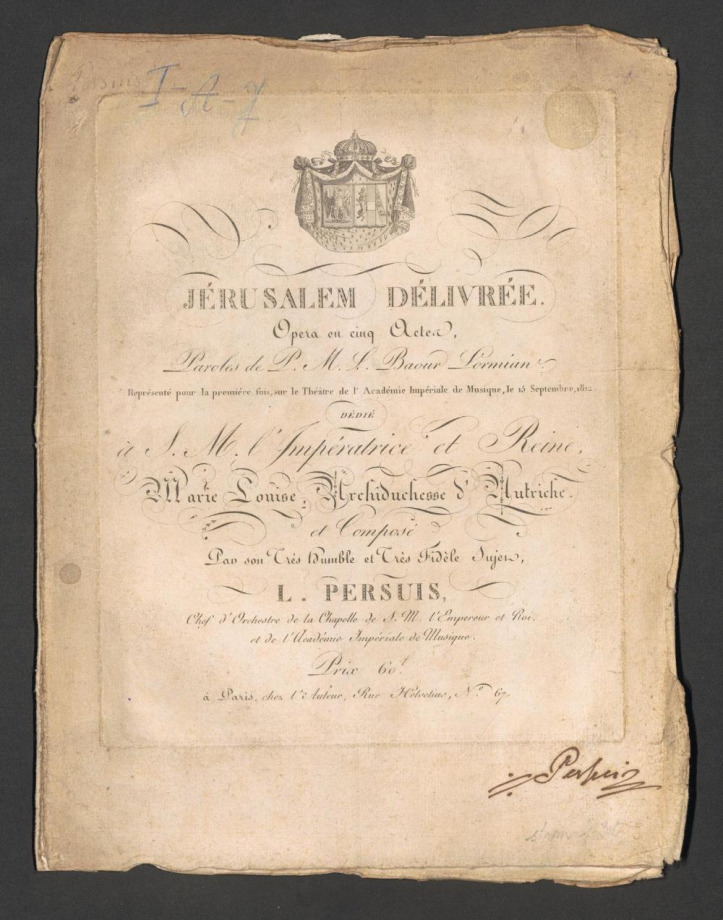 I-A-7
JÉRUSALEM DÉLIVRÉE.
Opera en cinq Actes,
Paroles de P. M. L. Baour Lormian
Représenté pour la première fois, sur le Théâtre de l'Académie Impériale de Musique, le 15 Septembre, 1812.
DÉDIÉ
à S. M. l'Impératrice et Reine,
Marie Louise, Archiduchesse d'Autriche.
et Composé
Par son Très Humble et Très Fidèle Sujet,
L. PERSUIS,
Chef d'Orchestre de la Chapelle de S. M. l'Empereur et Roi.
et de l'Académie Impériale de Musique.
Prix 60f.
à Paris, chez l'Auteur, Rue Helvétius, No. 67.
Persuis